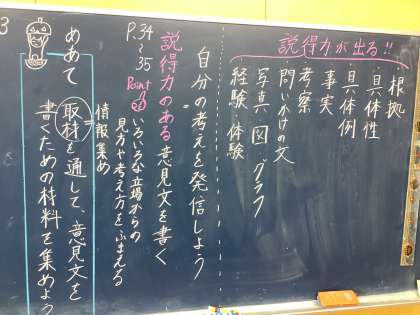 説得力が出る!!
根拠
具体性
具体例
事実
考察
問いかけの文
写真 図 グラフ
経験・体験
自分の考えを発信しよう
説得力のある意見文を書く
P.34~35
Point
いろいろな立場からの
見方や考え方をふまえる
情報集め
めあて
取材を通して、意見文を
書くための材料を集めよう
3